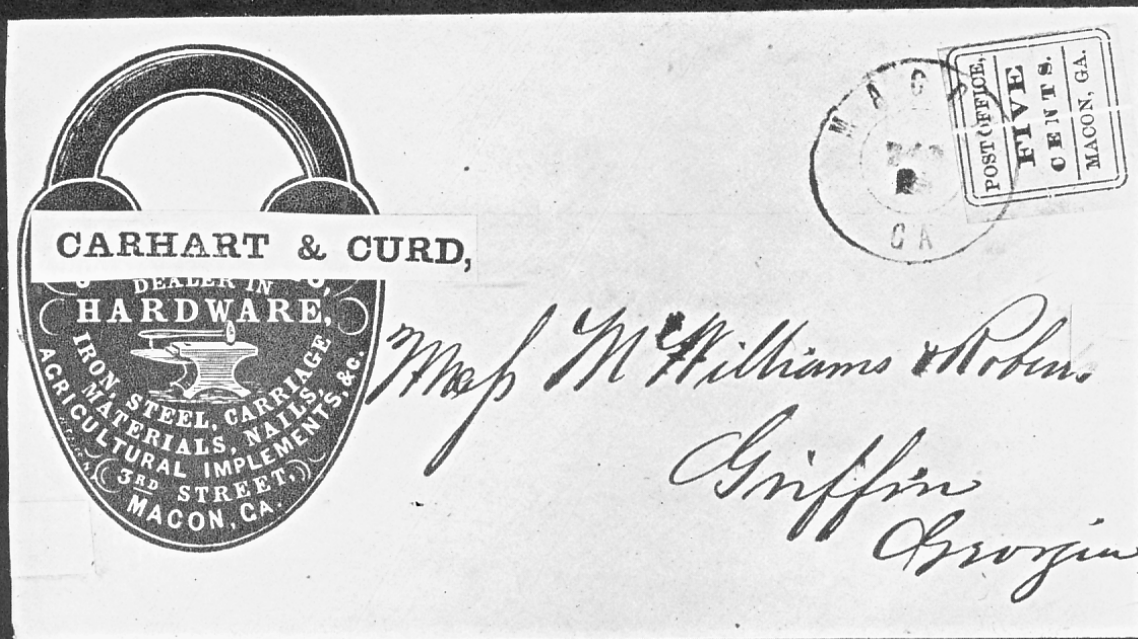 CARHART & CURD,
DEALER IN
HARDWARE,
IRON, STEEL, CARRIAGE
MATERIALS, NAILS,
AGRICULTURAL IMPLEMENTS, &C.
3RD STREET,
MACON, GA.
MAC
GA
POST OFFICE,
FIVE
CENTS.
MACON, GA.
Mess McWilliams & Robins
Griffin
Georgia